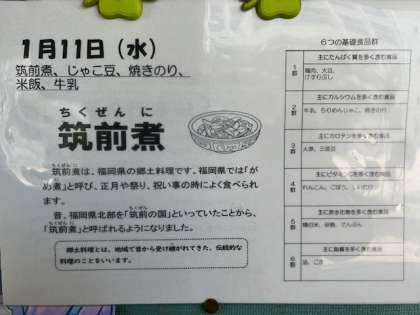 1月11日（水）
筑前煮、じゃこ豆、焼きのり、
米飯、牛乳
ちくぜん に
筑前煮
ちくぜんに
筑前煮は、福岡県の郷土料理です。福岡県では「が
め煮」と呼び、正月や祭り、祝い事の時によく食べられ
ます。
昔、福岡県北部を「筑前の国」といっていたことから、
ちくぜんに
「筑前煮」と呼ばれるようになりました。
郷土料理とは、地域で昔から受け継がれてきた、伝統的な
料理のことをいいます。
6つの基礎食品群
1群
主にたんぱく質を多く含む食品
鶏肉、大豆、
けずりぶし
2群
主にカルシウムを多く含む食品
牛乳、ちりめんじゃこ、焼きのり
3群
主にカロテンを多く含む食品
人参、三度豆
4群
主にビタミンCを多く含む食品
れんこん、ごぼう、
5群
主に炭水化物を多く含む食品
精白米、砂糖、でんぷん
6群
主に脂質を多く含む食品
油、ごま